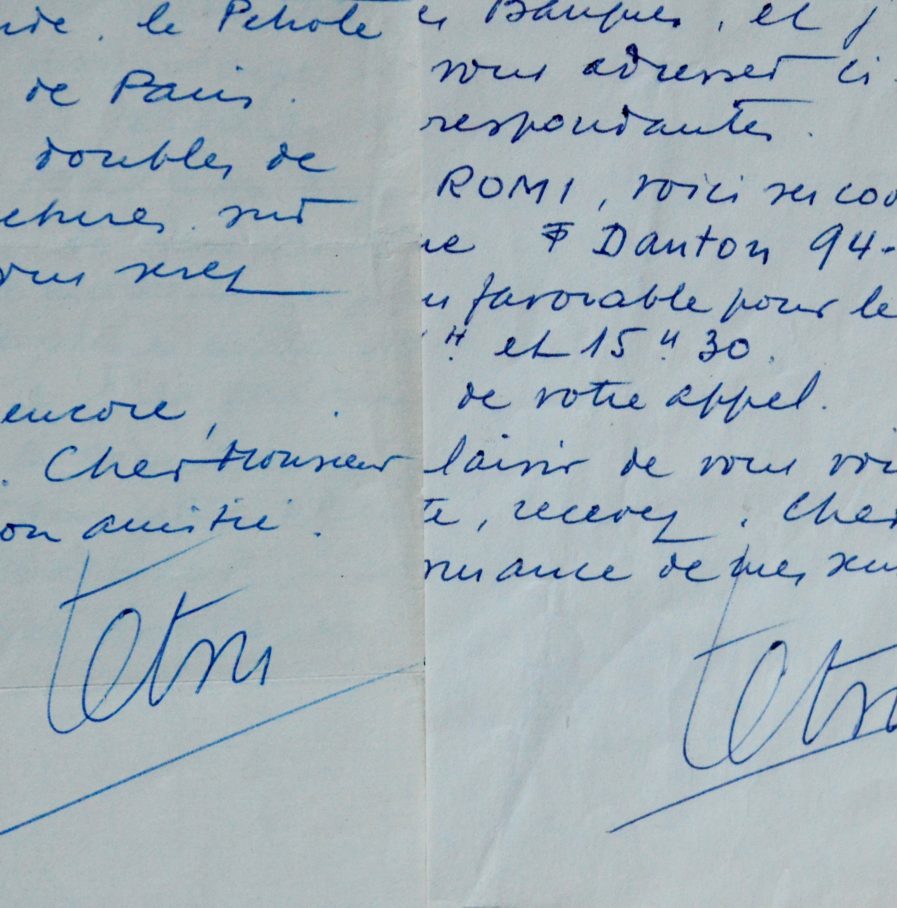 le Pétrole
de Paris.
doubles de
sur
serez
encore,
. Cher Monsieur
on amitié.
Tetsu
Banques, et j
vous adresser ci
respondantes.
ROMI, voici ses coo
Danton 94-
favorable pour le
H et 15 H 30.
de votre appel.
laisir de vous voi
te, recevez, Cher
de mes
Tetsu